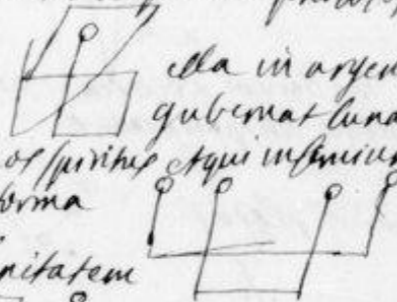 illa in argen
gubernat luna
os spiritus et qui inserviun
forma
nitatem